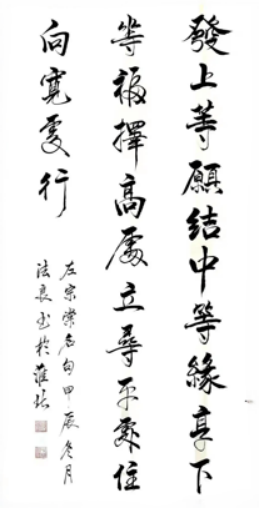 發上等願結中等緣享下
等福擇高處立尋平處住
向寬處行
左宗棠名句甲辰冬月
法良書於淮北